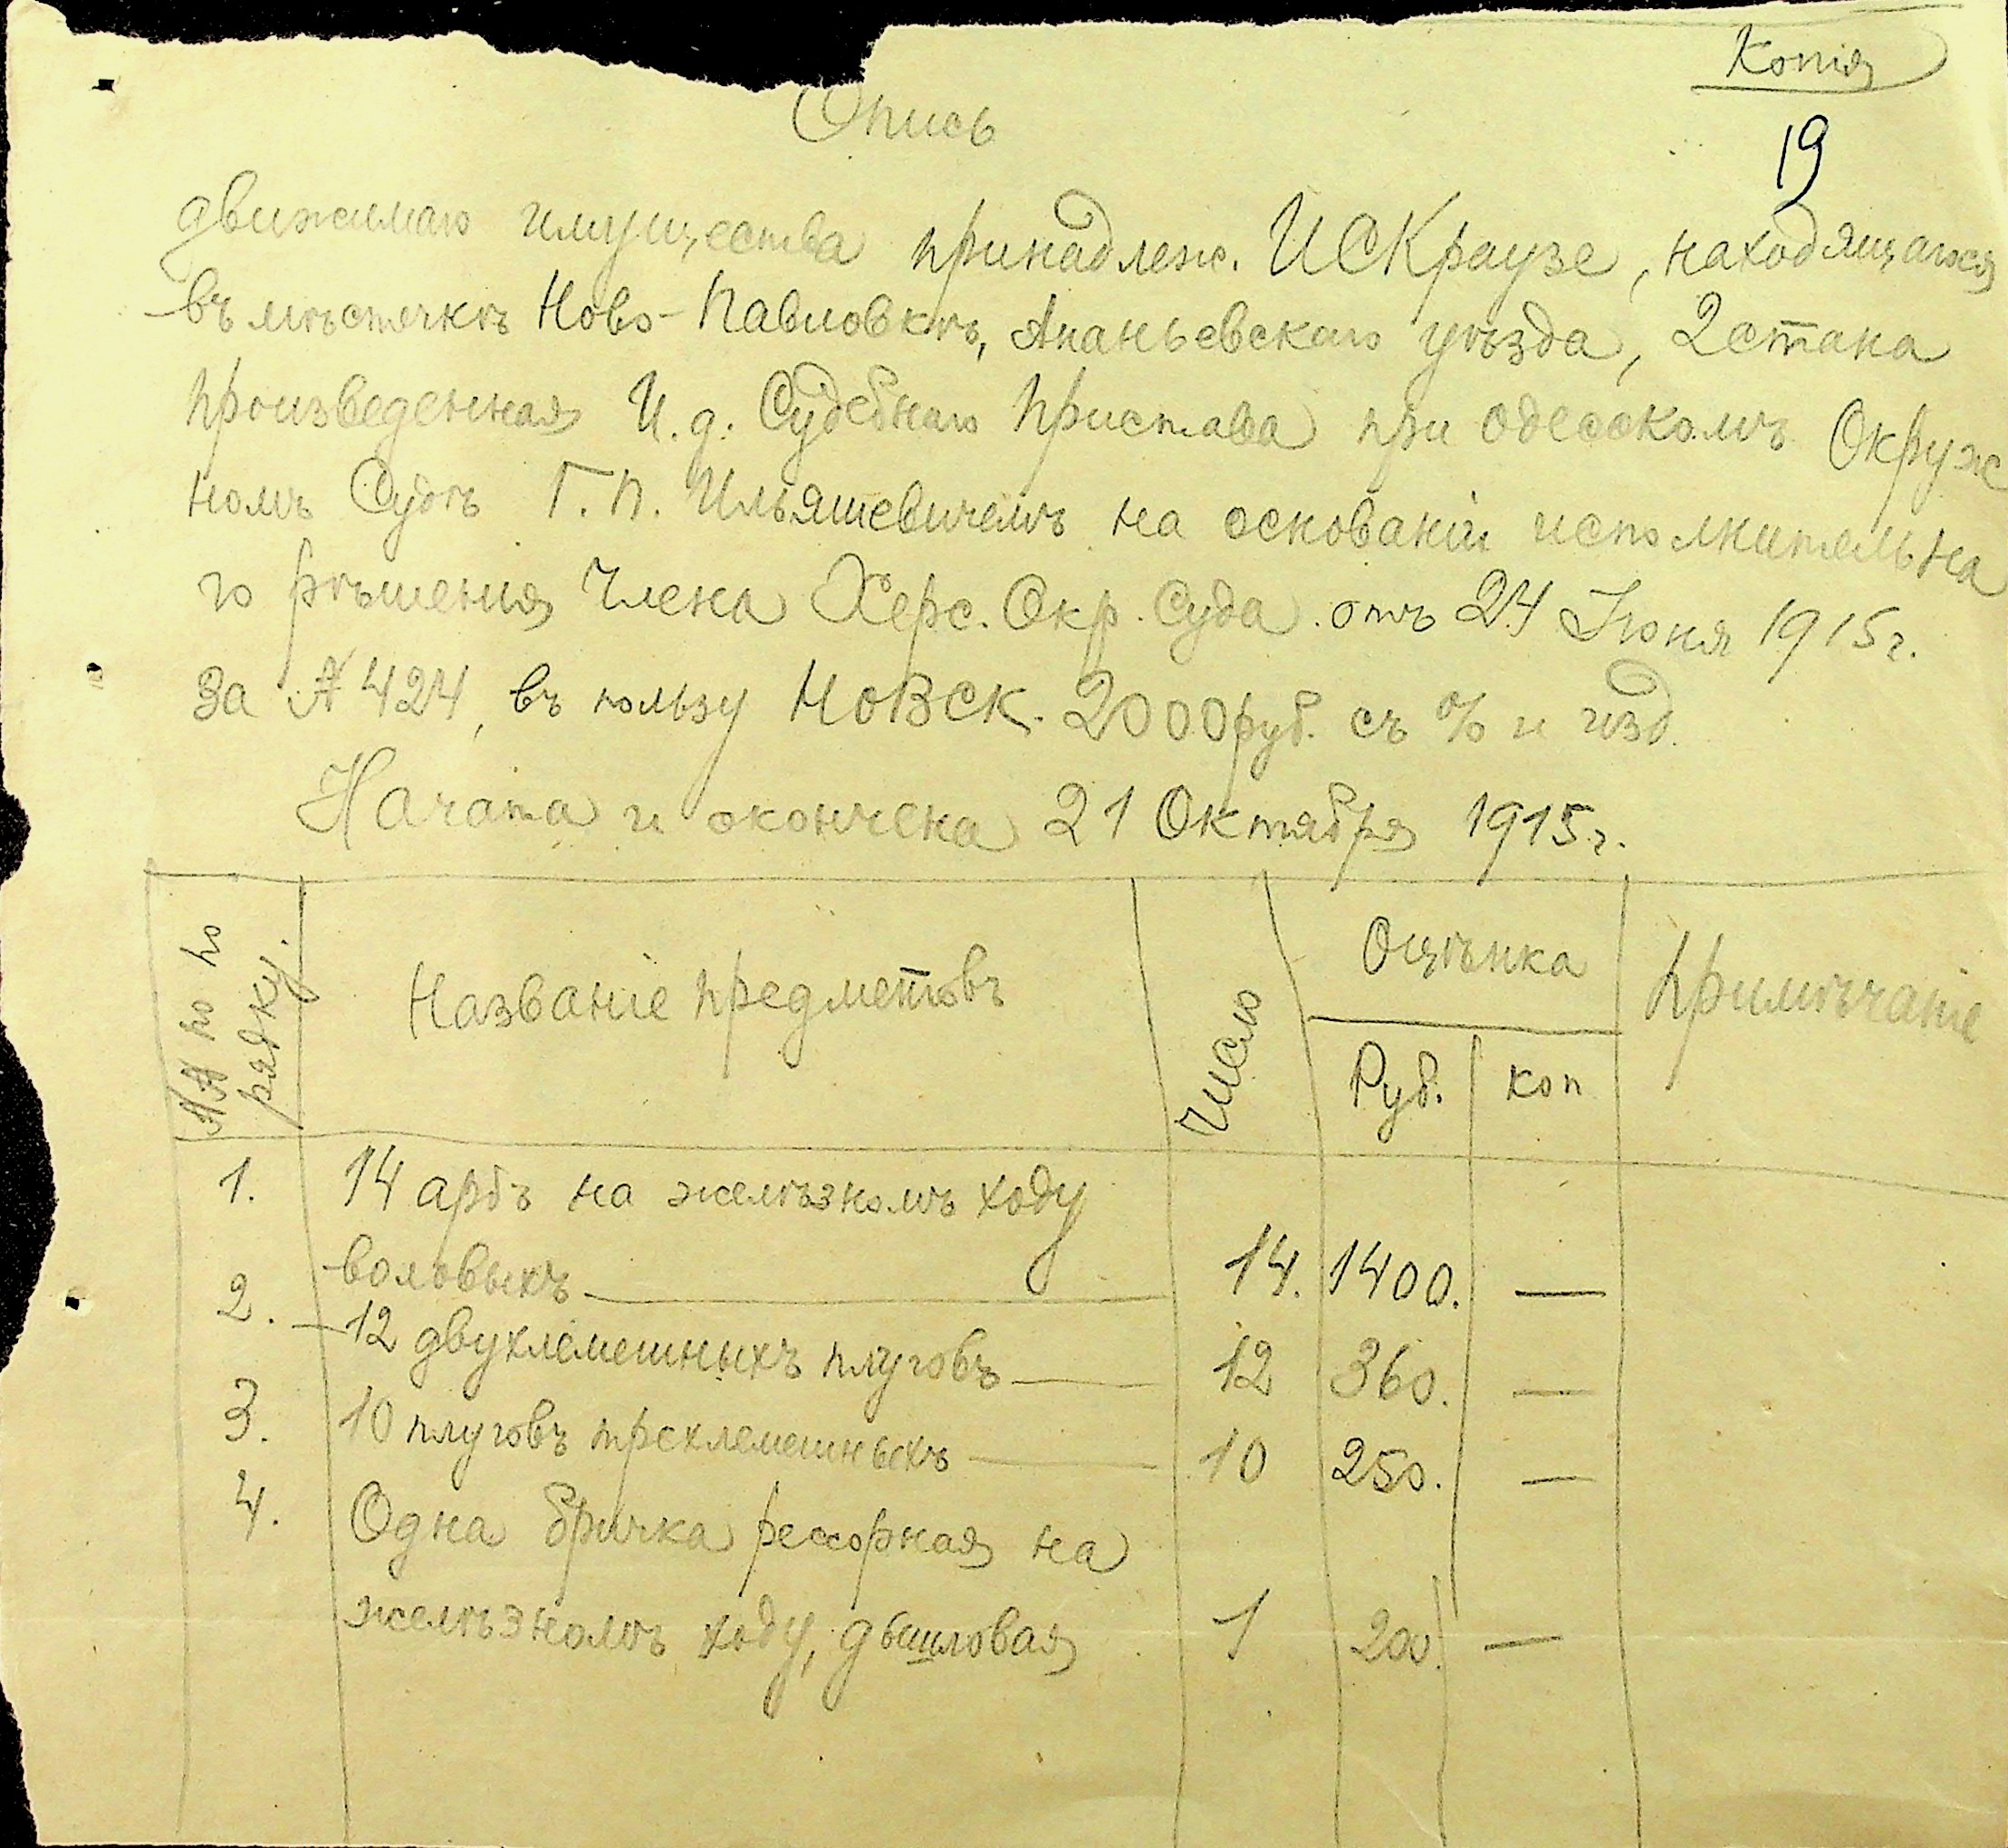 Копія
19
Опись
движимаго имущества принадлеж. И С Краузе, находящагося
въ мѣстечкѣ Ново-Павловкѣ, Ананьевскаго уѣзда, 2 стана
произведенная И. д. Судебнаго Пристава при Одесскомъ Окруж
номъ Судѣ Г. П. Ильяшевичемъ на основаніи исполнительна
го рѣшенія Члена Херс. Окр. Суда отъ 24 Іюня 1915 г.
за № 424, въ пользу НОВСК. 2000 руб. съ % и изд.
Начата и окончена 21 Октября 1915 г.
№№ по по
рядку.
Названіе предметовъ
Число
Оцѣнка
Руб. коп
Примѣчаніе
1. 14 арбъ на желѣзномъ ходу
воловыхъ 14. 1400. —
2. 12 двухлемешныхъ плуговъ 12 360. —
3. 10 плуговъ трехлемешныхъ 10 250. —
4. Одна бричка рессорная на
желѣзномъ ходу, дышловая 1 200. —